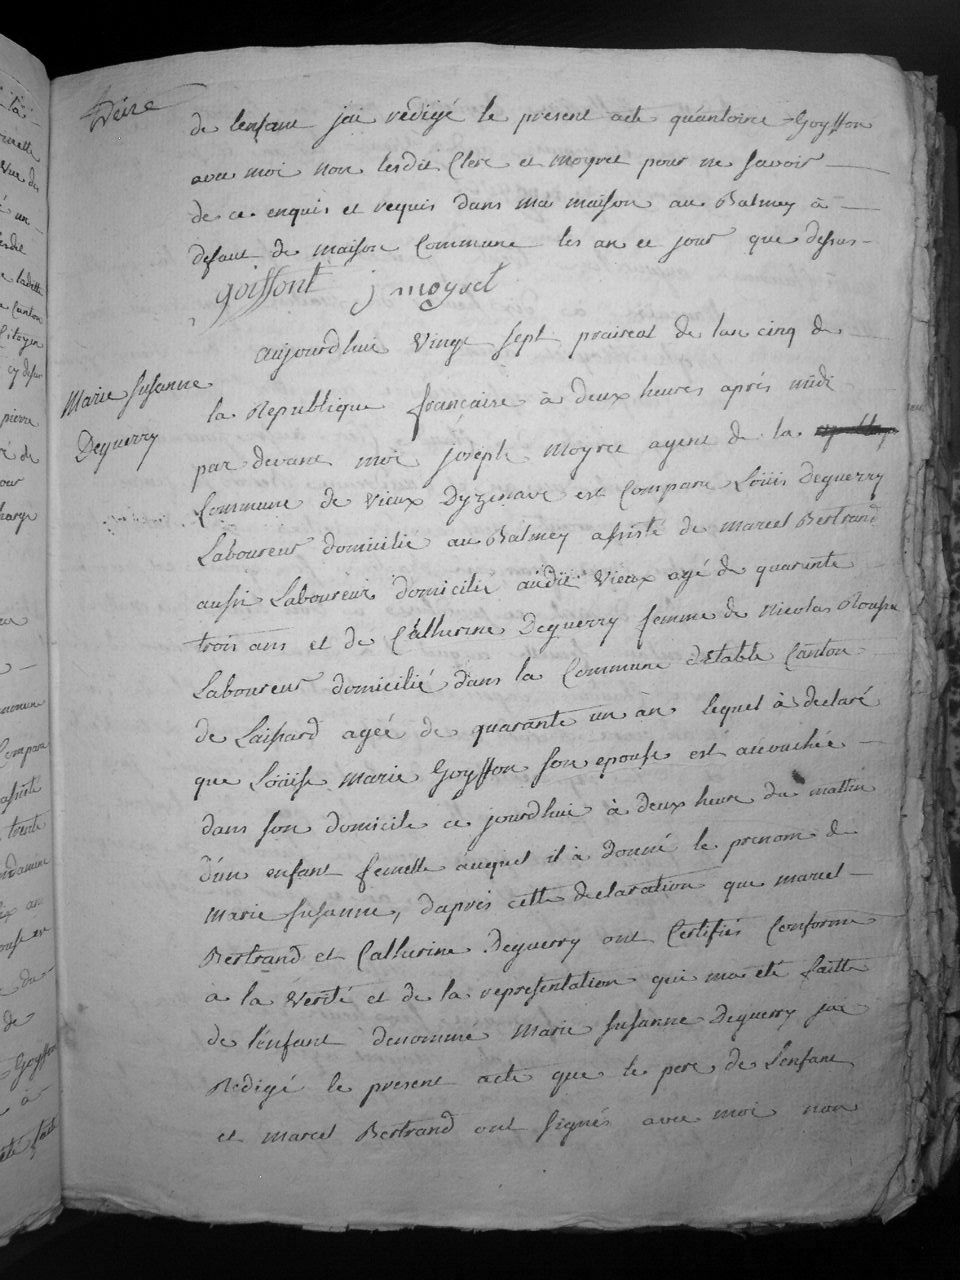 de lenfant jai redigé le present acte quantoine Goyffon
avec moi non lesdit Clerc et moyret pour ne savoir
de ce enquis et requis dans ma maison au Balmey à
defaut de maison Commune les an et jour que dessus
goiffont j moyret
Marie Susanne
Deguerry
aujourdhui vingt sept praireal de lan cinq de
la Republique francaise à deux heures après midi
par devant moi joseph Moyret agent de la
Commune de vieux Dyzenave est Comparu Loüis Deguerry
Laboureur domicilié au Balmey assisté de marcel Bertrand
aussi Laboureur domicilié audit vieux agé de quarante
trois ans et de Catherine Deguerry femme de Nicolas Rousse
Laboureur domicilié dans la Commune détable Canton
de Laissard agée de quarante un an lequel à declaré
que Loüise Marie Goyffon son epouse est acouchée
dans son domicile ce jourdhui à deux heure du mattin
dun enfant femelle auquel il à donné le prenom de
Marie Susanne, daprès cette declaration que marcel
Bertrand et Catherine Deguerry ont Certifiés Conforme
à la Verité et de la representation qui ma été faitte
de lenfant denommé Marie Susanne Deguerry jai
Redigé le present acte que le pere de Lenfant
et marcel Bertrand ont signés avec moi non